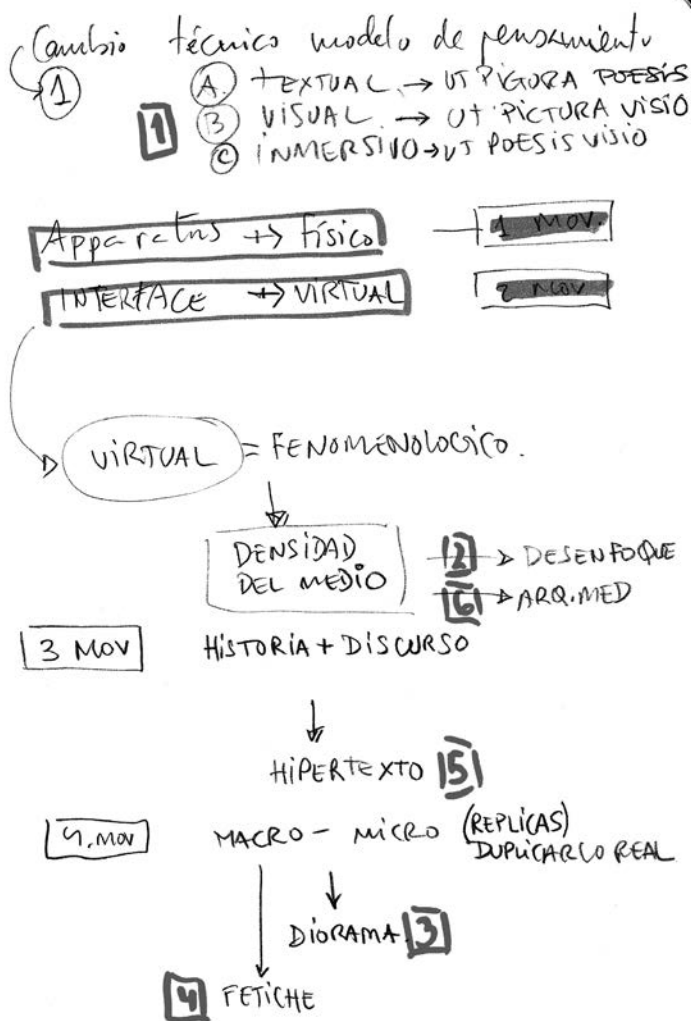 Cambio técnico modelo de pensamiento
1
A. TEXTUAL → UT PIGTURA POESIS
1 B VISUAL → UT PICTURA VISIO
C INMERSIVO → UT POESIS VISIO
Apparatus ↔ Físico 1 MOV.
INTERFACE ↔ VIRTUAL 2 MOV
VIRTUAL = FENOMENOLOGICO.
DENSIDAD 2 → DESENFOQUE
DEL MEDIO 6 → ARQ.MED
3 MOV HISTORIA + DISCURSO
HIPERTEXTO 5
4. MOV MACRO - MICRO (REPLICAS)
DUPLICAR LO REAL
DIORAMA 3
4 FETICHE